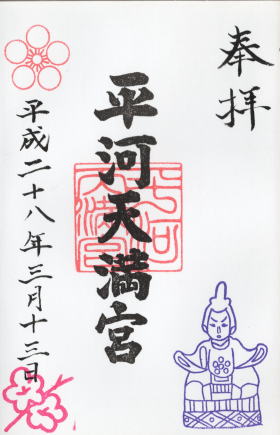 奉拝
平河天満宮
平成二十八年三月十三日
平河
天満宮